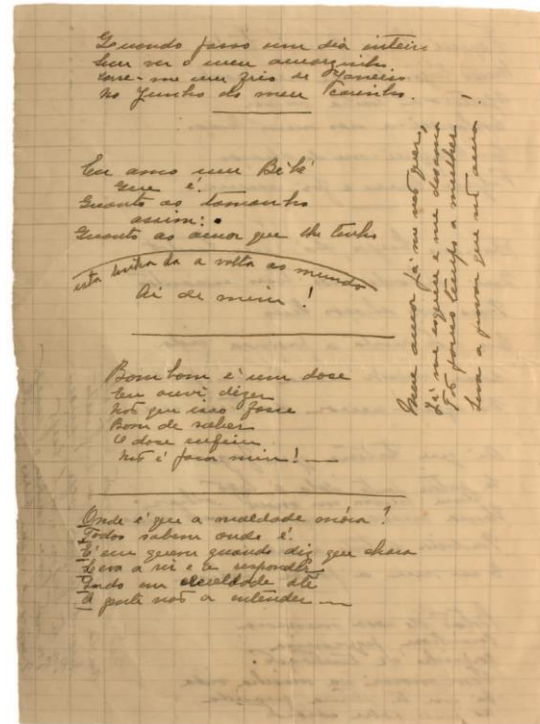 Quando passo um dia inteiro
Sem ver o meu amorzinho
Corre-me um frio de Janeiro
No Junho do meu carinho.
Eu amo um Bébé
Que é
Quanto ao tamanho
assim: •
Quanto ao amor que lhe tenho
esta linha dá a volta ao mundo
Ai de mim!
Bombom é um doce
Eu ouvi dizer
Não que isso fosse
Bom de saber
O doce enfim
Não é para mim! —
Onde é que a maldade móra?
Todos sabem onde é.
É em quem quando diz que chora
Leva a rir e a responder
Tudo em crueldade até
A gente não a entender —
Meu amor já me não quer,
Já me esquece e me desama
Tão pouco tempo a mulher
Leva a provar que não ama!